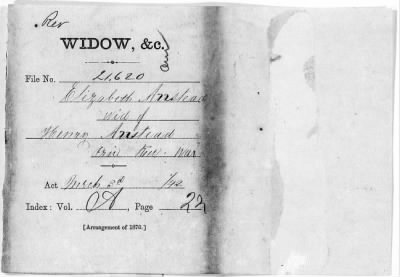 Rev
WIDOW, &c.
File No. 21,620
Elizabeth Anstead
wid of
Henry Anstead
Rev. War
Act March 3d
Index: Vol. A, Page 22
[Arrangement of 1870.]